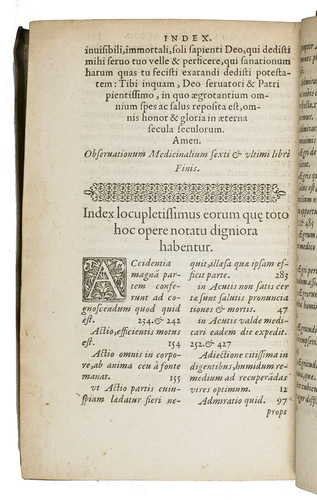 INDEX.
inuisibili, immortali, soli sapienti Deo, qui dedisti
mihi seruo tuo velle & perficere, qui sanationum
harum quas tu fecisti exarandi dedisti potesta-
tem: Tibi inquam, Deo seruatori & Patri
pientissimo, in quo ægrotantium om-
nium spes ac salus reposita est, om-
nis honor & gloria in æterna
secula seculorum.
Amen.
Obseruationum Medicinalium sexti & vltimi libri
Finis.
Index locupletissimus eorum quę toto
hoc opere notatu digniora
habentur.
ACcidentia
magna par-
tem confe-
runt ad co-
gnoscendum quod quid
est. 234. & 242
Actio, efficientis motus
est. 154
Actio omnis in corpo-
re, ab anima ceu à fonte
manat. 155
vt Actio partis cuiu-
spiam lædatur fieri ne-
quit, illæsa quæ ipsam ef-
ficit parte. 283
in Acutis non satis cer
tæ sunt salutis pronuncia
tiones & mortis. 47
in Acutis valde medi-
cari eadem die expedit.
252. & 427
Adiectione citissima in
digentibus, humidum re-
medium ad recuperādas
vires optimum. 12
Admiratio quid. 97
prope